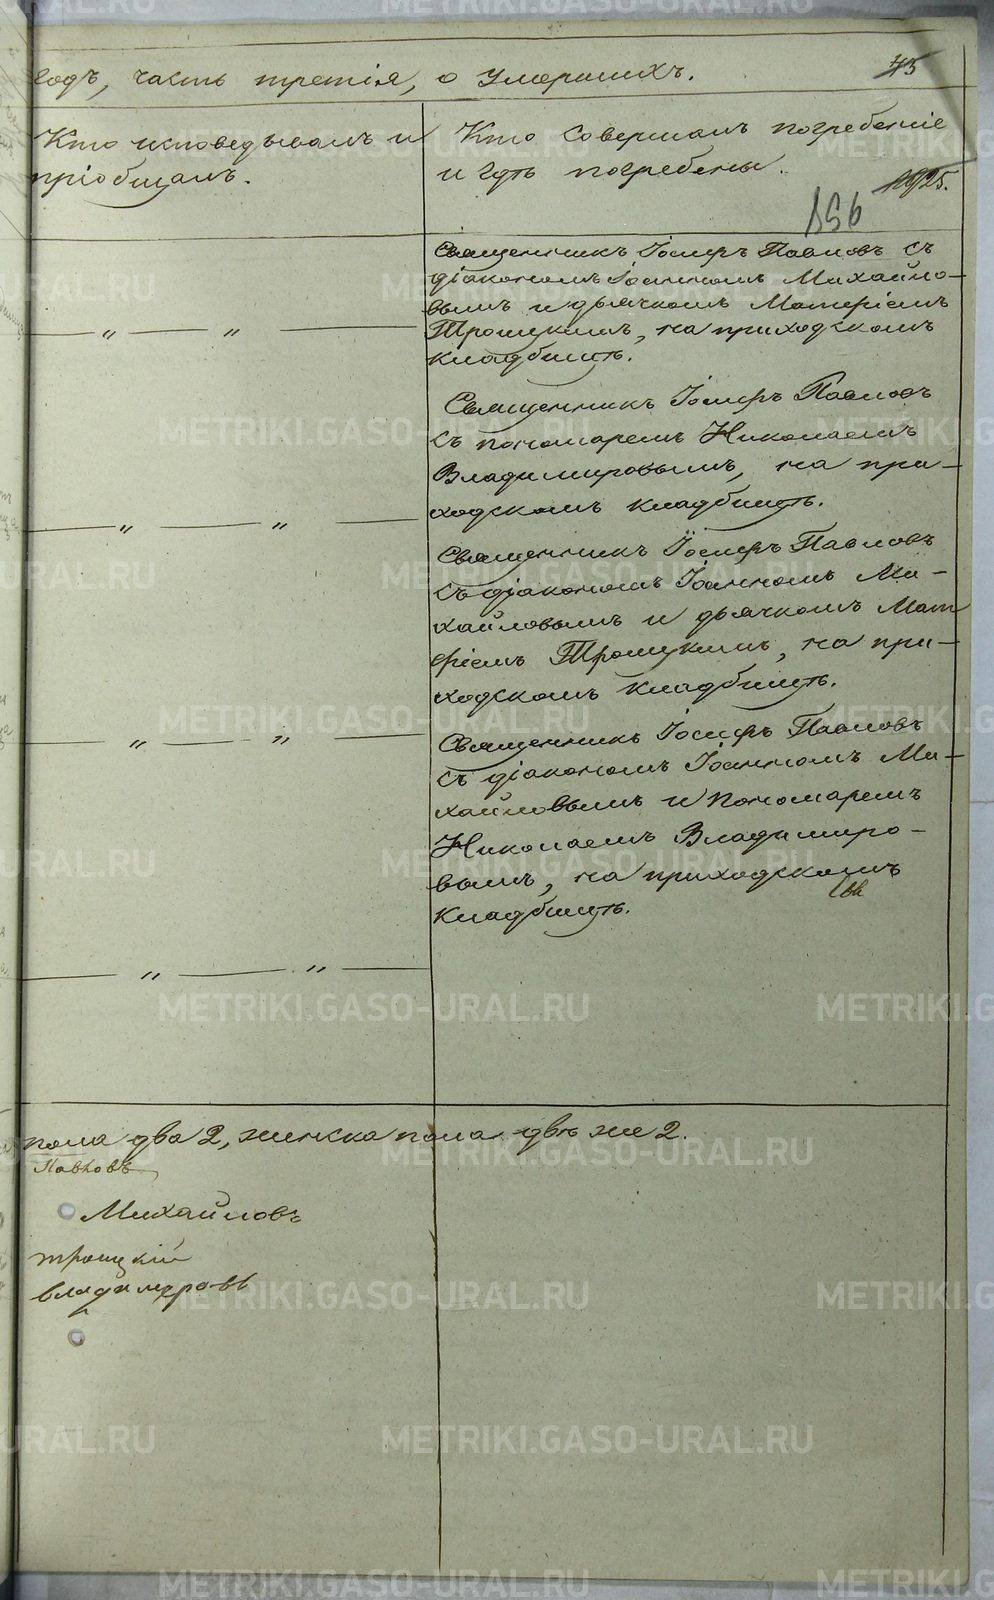 годъ, часть третія, о умершихъ.
75
Кто исповедывалъ и
пріобщалъ.
Кто совершалъ погребеніе
и гдѣ погребены.
1925.
156
Священникъ Іосифъ Павловъ съ
діакономъ Іоанномъ Михайло-
вымъ и дьячкомъ Матфіемъ
Троицкимъ, на приходскомъ
кладбищѣ.
— „ — „ —
Священникъ Іосифъ Павловъ
съ пономаремъ Николаемъ
Владимировымъ, на при-
ходскомъ кладбищѣ.
— „ — „ —
Священникъ Іосифъ Павловъ
съ діакономъ Іоанномъ Ми-
хайловымъ и дьячкомъ Мат
фіемъ Троицкимъ, на при-
ходскомъ кладбищѣ.
— „ — „ —
Священникъ Іосифъ Павловъ
съ діакономъ Іоанномъ Ми-
хайловымъ и пономаремъ
Николаемъ Владимиро-
вымъ, на приходскомъ
кладбищѣ.
— „ — „ —
пола два 2, женска пола двѣ же 2.
Павловъ
Михайловъ
Троицкій
Владимировъ
METRIKI.GASO-URAL.RU